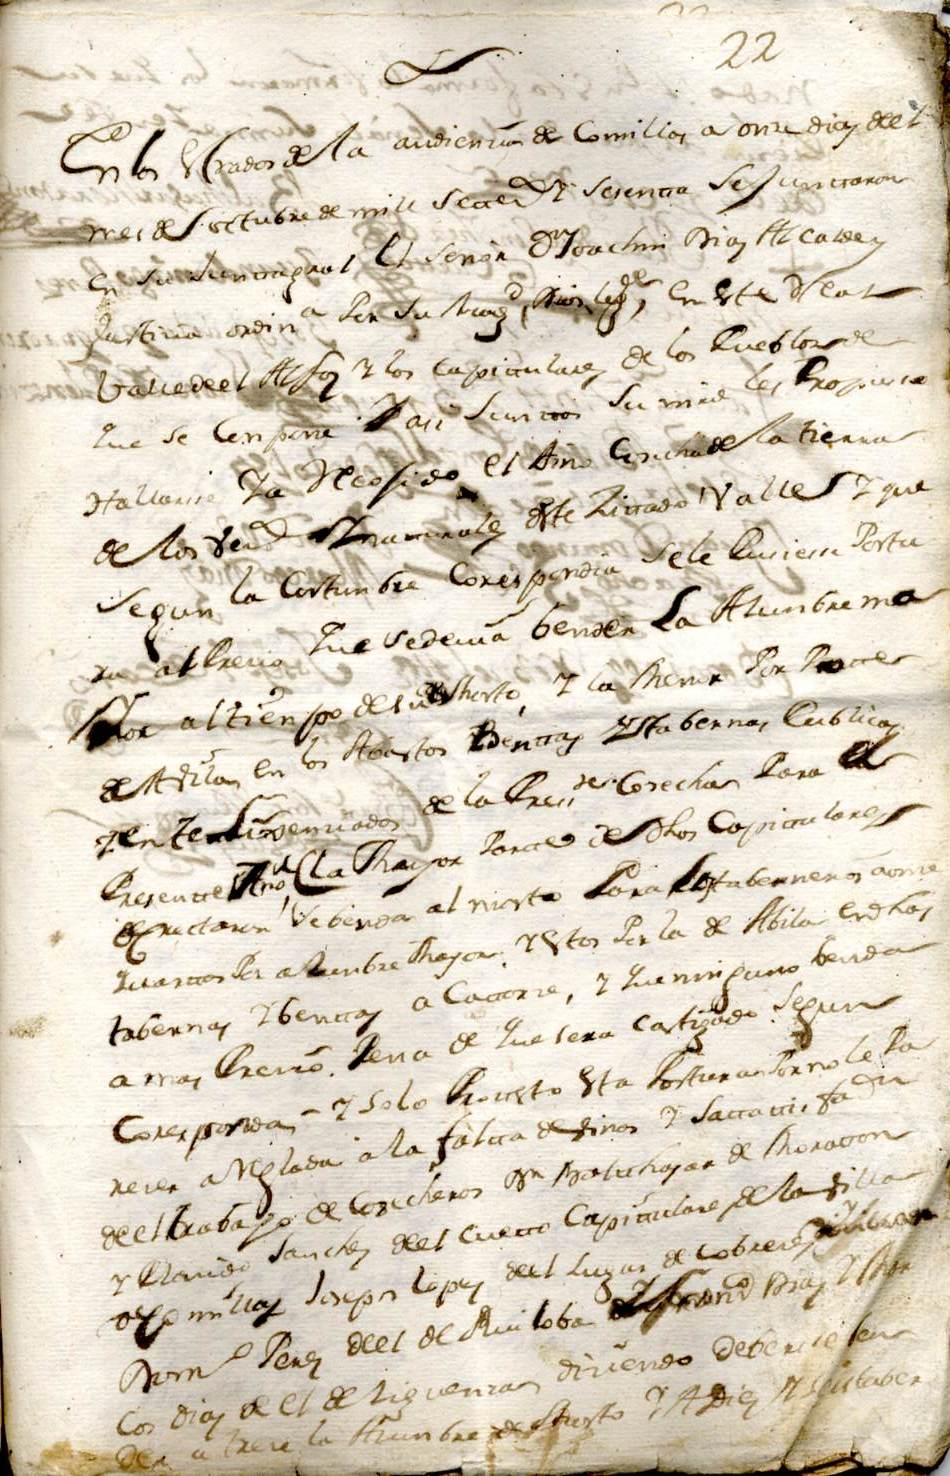 22
En los estrados de la audiencia de Comillas a onze dias deel
mes de octubre de mill setez.s y sesenta se juntaron
en su junta gral el señor Dn Joachin Diaz Alcalde y
Justicia ordin.a por su Magd, en este Real
Valle deel Alfoz y los Capitulares de los Pueblos de
que se compone y asi juntos su mrd les Propuso
Hallarse ya Recojido el Vino Cosecha de la tierra
de los vez.s y naturales de este zittado Valle y que
segun la Costumbre Corespondia se le Pusiese Postu
ra al Precio que se devia bender La Alumbre ma
ior al tienpo del Mosto, y la Menor Por Parte
de Avila en los Abastos Bentas y tabernas Publicas
y en
de la Pres.te Cosecha Para el
Presente Año, la Mayor Parte de dhos Capitulares
Decretaron se benda al mosto Para los taberneros a onze
quartos Por alunbre Mayor, y estos Por la de Abila en dhas
tabernas y bentas a Catorce, y que ninguno benda
a mas Precio, Pena de que sera castigado segun
Coresponda, y solo Protesto esta Postura Por no le Pa
recer areglada a la falta de vinos y
deel trabajo de Cosecheros Dn Balthasar de
y Sanchez deel Cueto Capitulares de la Villa
de Comillas Joseph Lopez deel Lugar de Cobreces
Perez deel de Ruiloba Diaz y Mar
cos Diaz de el de Liguerzana diciendo deberse ben
der a trece la Alunbre de Mosto y